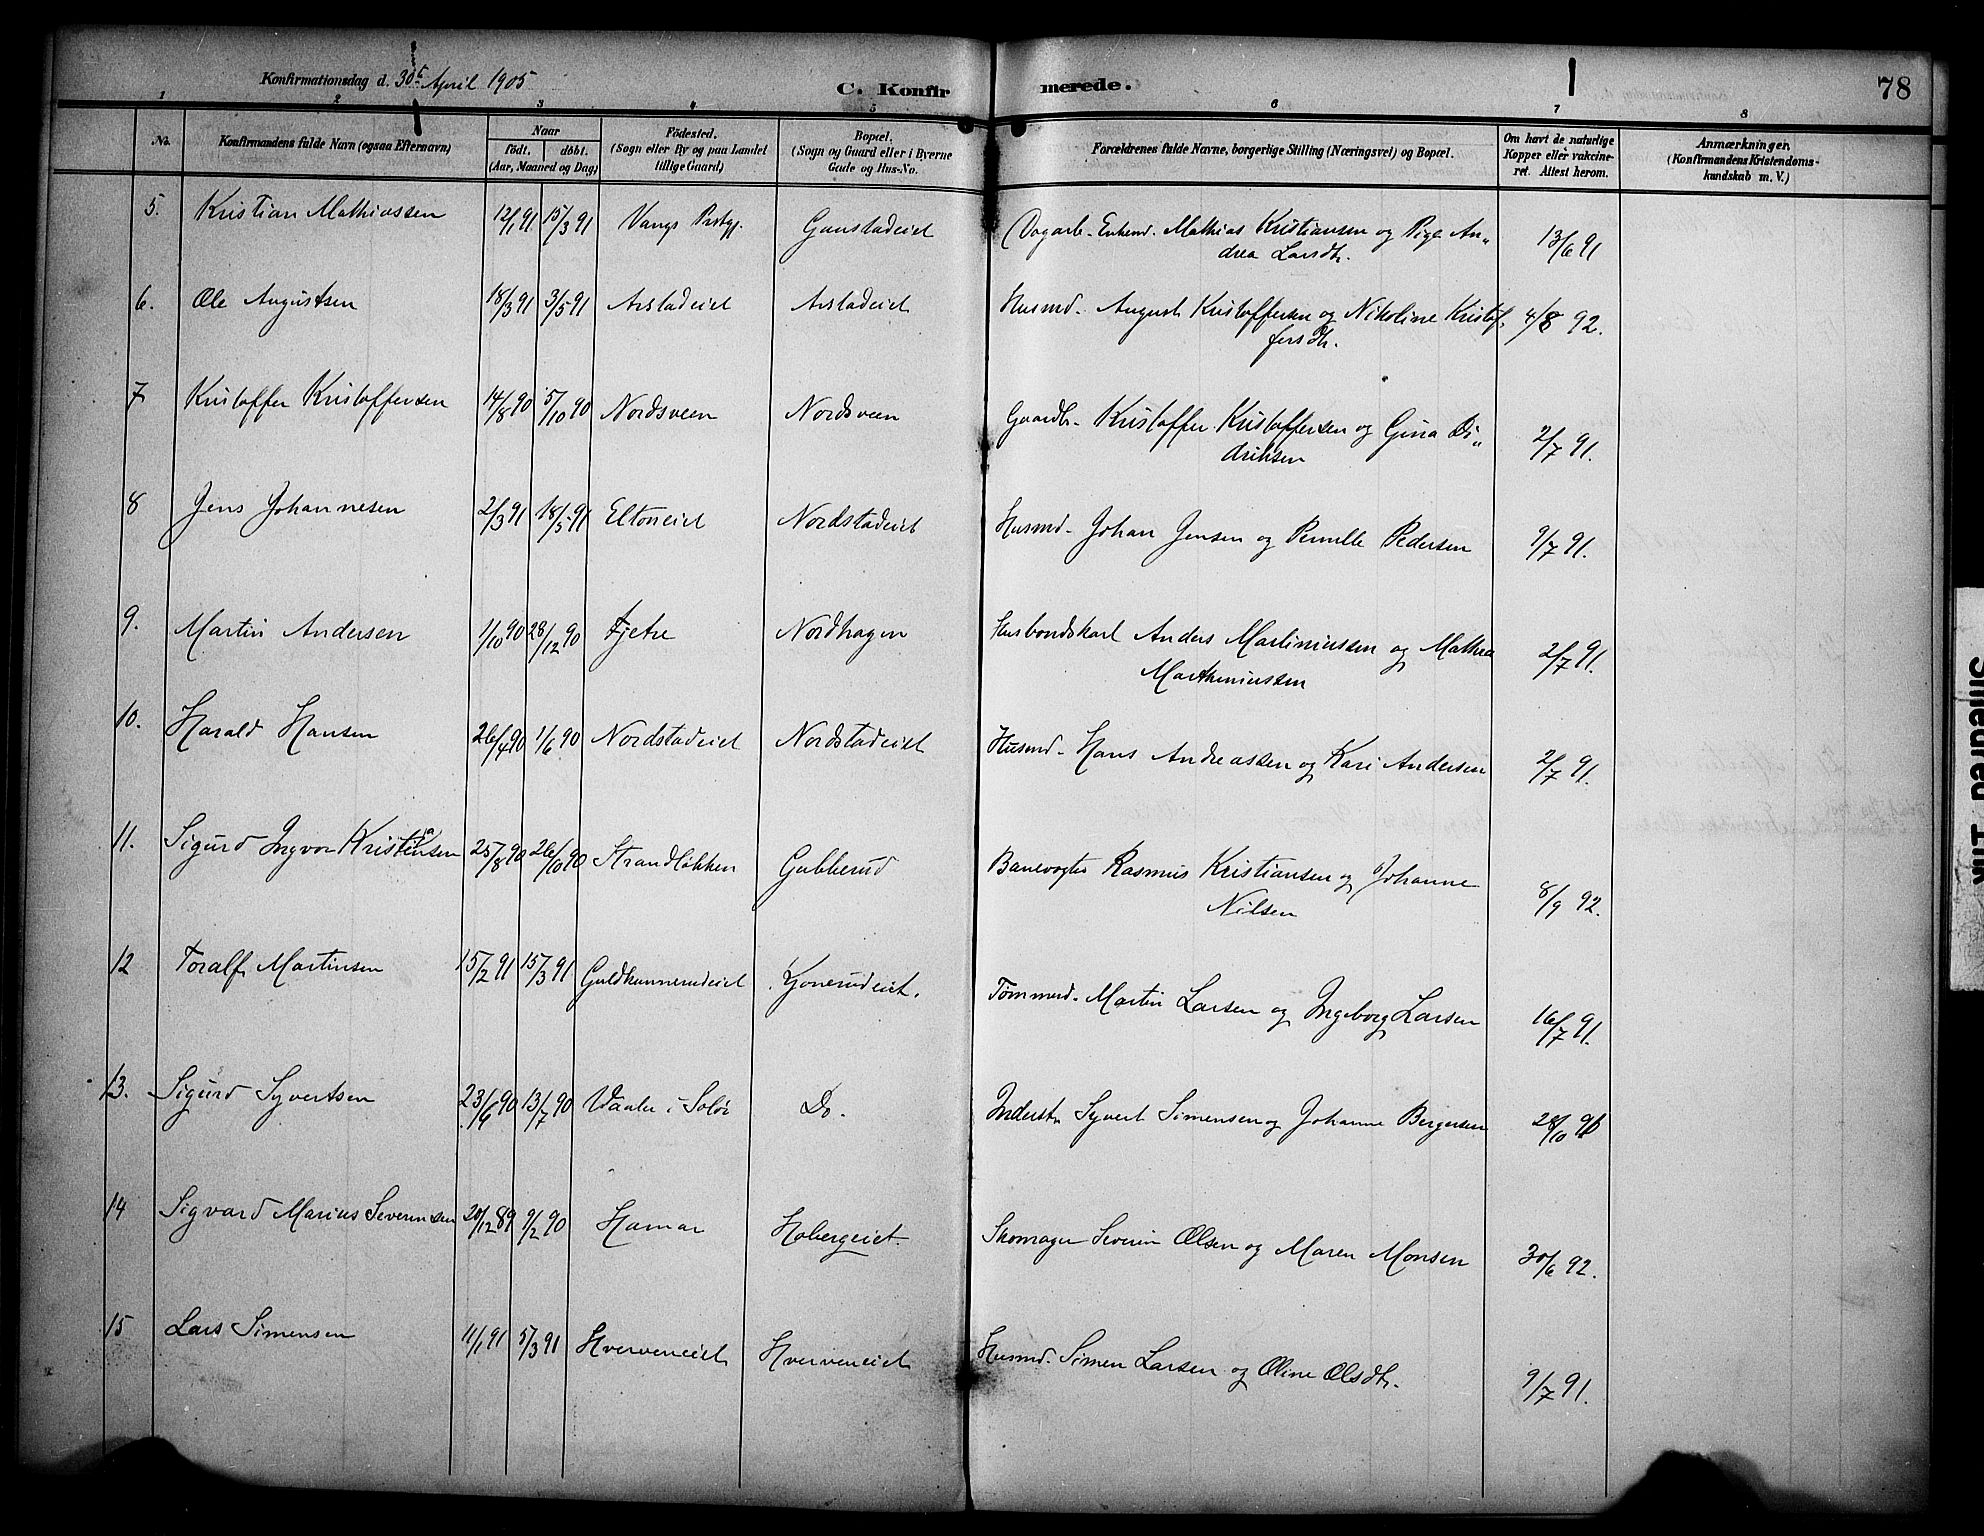 Konfirmationsdag d. 30te April 1905
C. Konfirmerede.
78
1 2 3 4 5 6 7 8
No. Konfirmandens fulde Navn (ogsaa Efternavn) Naar födt. döbt. (Aar, Maaned og Dag) Födested. (Sogn eller By og paa Landet tillige Gaard) Bopæl. (Sogn og Gaard eller i Byerne Gade og Hus-No. Forældrenes fulde Navne, borgerlige Stilling (Næringsvei) og Bopæl. Om havt de naturlige Kopper eller vakcineret. Attest herom. Anmærkninger. (Konfirmandens Kristendomskundskab m. V.)
5. Kristian Mathiassen 12/1 91 15/3 91 Vangs Prstgj. Gaustadeiet Dagarb. Enkemd. Mathias Kristiansen og Pige An„ 13/6 91
drea Larsdtr.
6. Ole Augustsen 18/3 91 3/5 91 Arstadeiet Arstadeiet Husmd. August Kristoffersen og Nikoline Kristof„ 4/8 92.
fersdtr.
7 Kristoffer Kristoffersen 14/8 90 5/10 90 Nordsveen Nordsveen Gaardbr. Kristoffer Kristoffersen og Gina Di„ 2/7 91.
driksen
8 Jens Johannesen 2/3 91 18/5 91 Eltoneiet Nordstadeiet Husmd. Johan Jensen og Pernille Pedersen 9/7 91.
9. Martin Andersen 1/10 90 28/12 90 Fjetre Nordhagen Husbondskarl Anders Martiniussen og Mathea 2/7 91.
Marthiniussen
10. Harald Hansen 26/4 90 1/6 90 Nordstadeiet Nordstadeiet Husmd. Hans Andreassen og Kari Andersen 2/7 91.
11. Sigurd Ingvar Kristiansen 25/8 90 26/10 90 Strandløkken Gubberud Banevogter Rasmus Kristiansen og Johanne 8/9 92.
Nilsen
12 Toralf Martinsen 15/2 91 15/3 91 Guldkannerudeiet Lonerudeiet. Tømmermd. Martin Larsen og Ingeborg Larsen 16/7 91.
13. Sigurd Syvertsen 23/6 90 13/7 90 Vaaler i Solør Do. Inderst Syvert Simensen og Johanne Bergersen 28/10 91
14 Sigvard Marius Severinsen 20/12 89 9/2 90 Hamar Hobergeiet. Skomager Severin Olsen og Maren Monsen 30/6 92.
15 Lars Simensen 11/1 91 5/3 91 Hverveneiet Hverveneiet Husmd. Simen Larsen og Oline Olsdtr. 9/7 91.